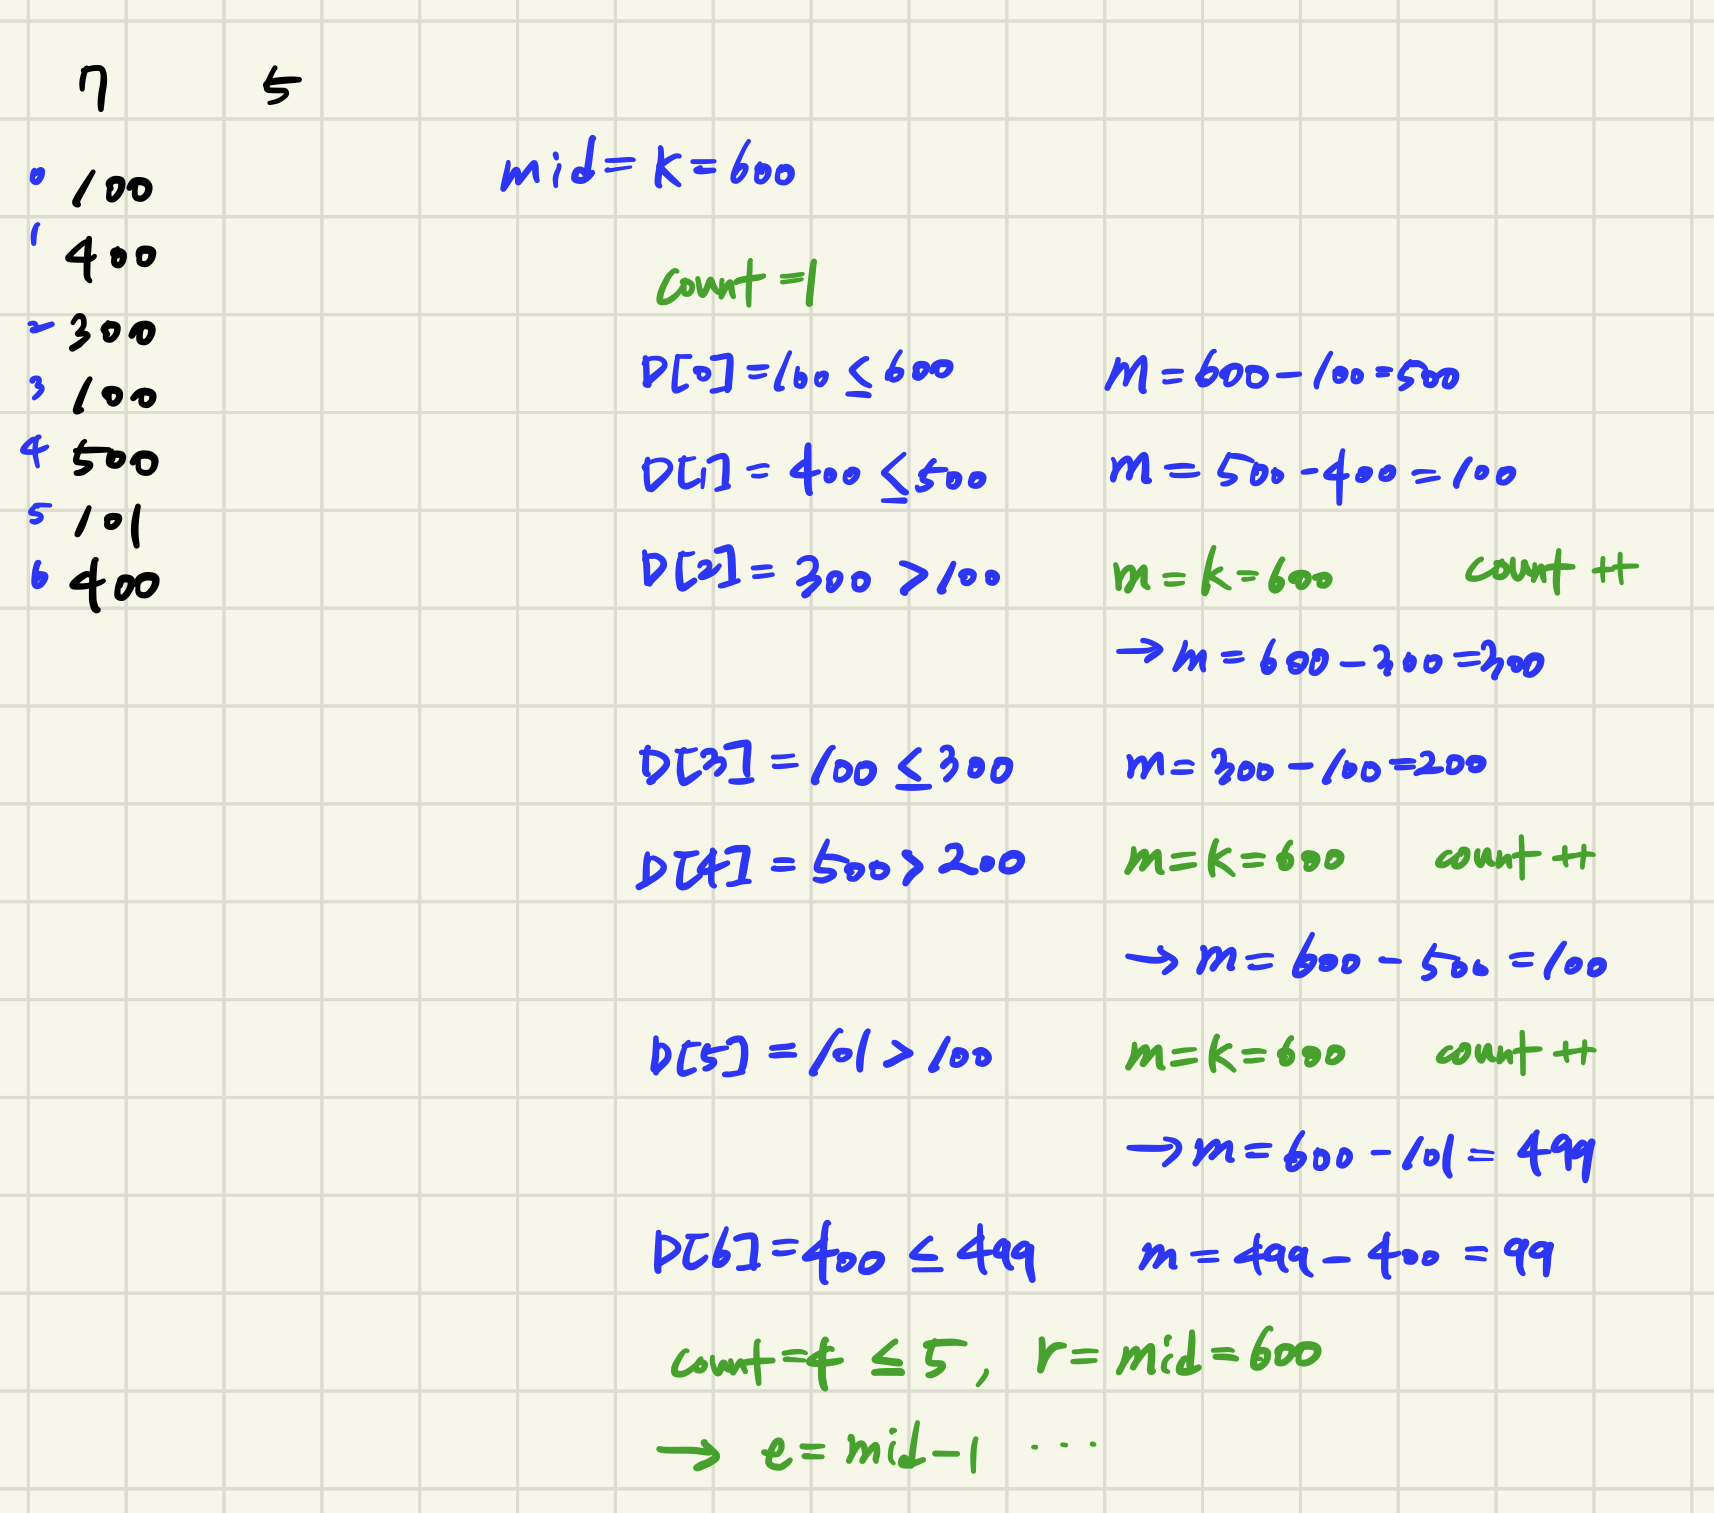 7 5
0 100
1 400
2 300
3 100
4 500
5 101
6 400
mid = K = 600
count = 1
D[0] = 100 ≤ 600 m = 600 - 100 = 500
D[1] = 400 ≤ 500 m = 500 - 400 = 100
D[2] = 300 > 100 m = k = 600 count ++
→ m = 600 - 300 = 300
D[3] = 100 ≤ 300 m = 300 - 100 = 200
D[4] = 500 > 200 m = k = 600 count ++
→ m = 600 - 500 = 100
D[5] = 101 > 100 m = k = 600 count ++
→ m = 600 - 101 = 499
D[6] = 400 ≤ 499 m = 499 - 400 = 99
count = 4 ≤ 5, r = mid = 600
→ e = mid - 1 ...